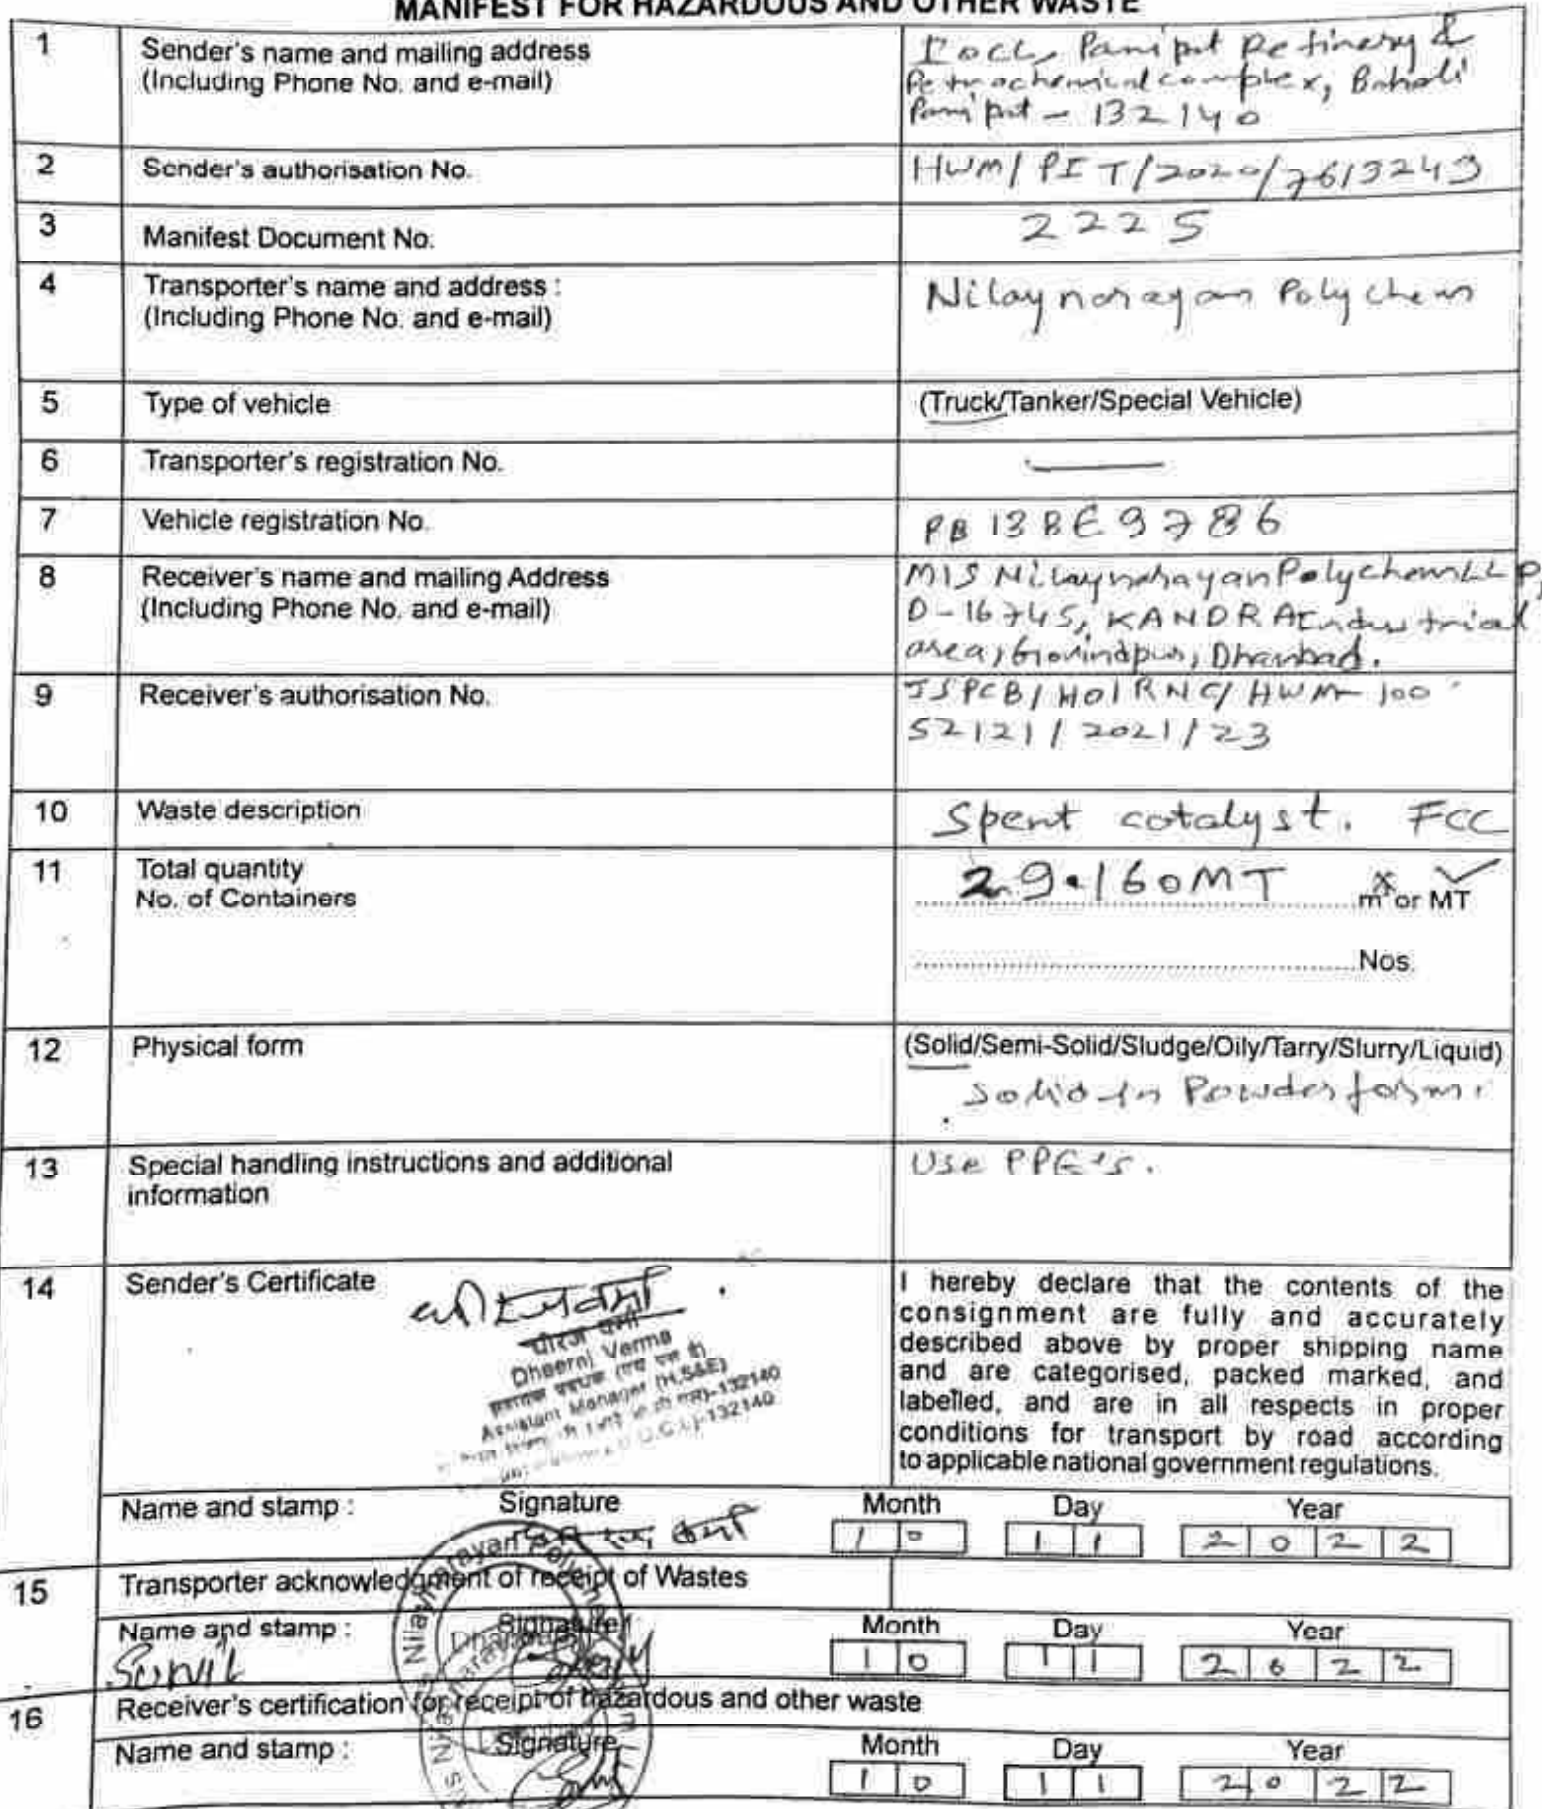 MANIFEST FOR HAZARDOUS AND OTHER WASTE
1 Sender's name and mailing address
(Including Phone No. and e-mail)
IOCL, Panipat Refinery &
Petrochemical complex, Baholi
Panipat - 132140
2 Sender's authorisation No.
HWM/PIT/2020/7613243
3 Manifest Document No.
2225
4 Transporter's name and address :
(Including Phone No. and e-mail)
Nilaynarayan Polychem
5 Type of vehicle
(Truck/Tanker/Special Vehicle)
6 Transporter's registration No.
7 Vehicle registration No.
PB 13BE9786
8 Receiver's name and mailing Address
(Including Phone No. and e-mail)
M/S Nilaynarayan Polychem LLP,
D-16745, KANDRA Industrial
area, Govindpur, Dhanbad.
9 Receiver's authorisation No.
JSPCB/HO/RNC/HWM-100
52121/2021/23
10 Waste description
Spent catalyst. FCC
11 Total quantity
No. of Containers
29.160MT m³ or MT
Nos.
12 Physical form
(Solid/Semi-Solid/Sludge/Oily/Tarry/Slurry/Liquid)
Solid in Powder form.
13 Special handling instructions and additional
information
Use PPE's.
14 Sender's Certificate
धीरज वर्मा
Dheeraj Verma
Assistant Manager (H,S&E)
132140
132140
I hereby declare that the contents of the
consignment are fully and accurately
described above by proper shipping name
and are categorised, packed marked, and
labelled, and are in all respects in proper
conditions for transport by road according
to applicable national government regulations.
Name and stamp : Signature Month Day Year
10 11 2022
15 Transporter acknowledgment of receipt of Wastes
Name and stamp : Signature Month Day Year
Sunil 10 11 2022
16 Receiver's certification for receipt of hazardous and other waste
Name and stamp : Signature Month Day Year
10 11 2022